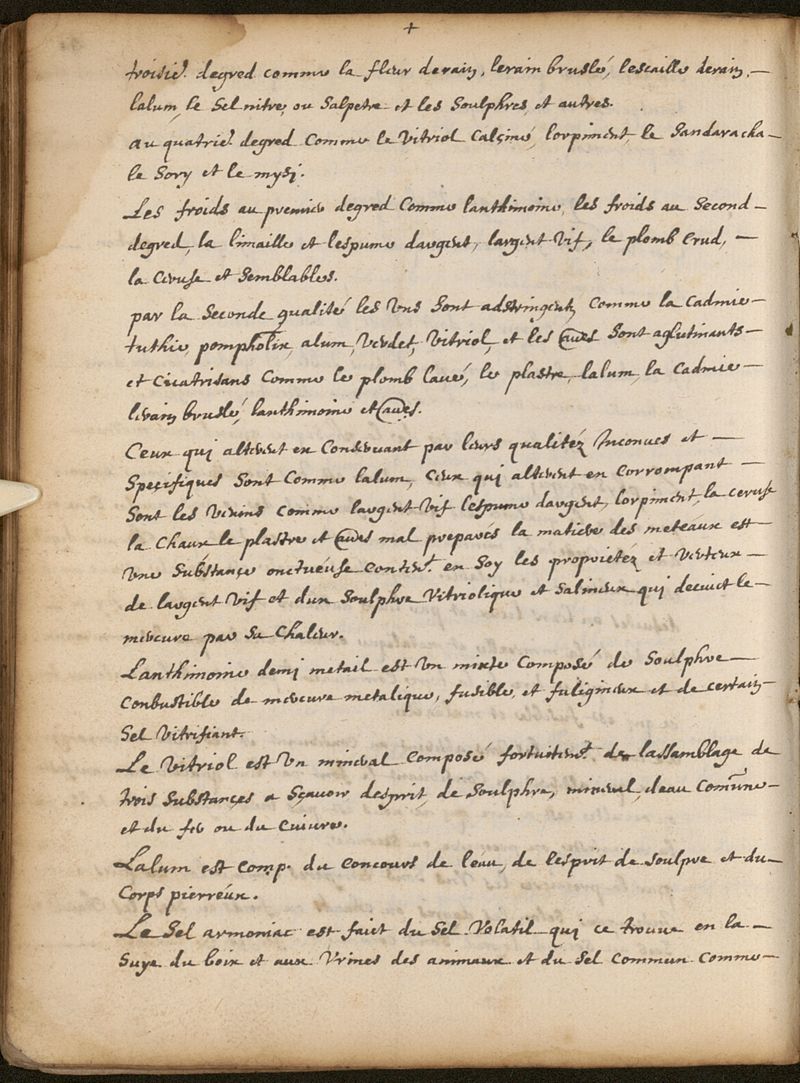 +
troisie. degred comme la fleur derain, lerain bruslé, lescaille derain,
lalum, le Sel nitre, ou Salpetre et les Soulphres, et autres.
au quatrie. degred Comme le Vitriol Calçiné, lorpiment, le Sandaracha
le Sory et le mysj.
Les froids au premier degred Comme lanthimoine, les froids au Second
degred, la limaille et lespume dargent, largent Vif, le plomb Crud,
la Ceruse et Semblables.
par la Seconde qualité les Uns Sont adstringents, Comme la Cadmie
tuthie, pompholix, alum, Verdet, Vitriol, et les Sont aglutinants
et Cicatrisans Comme le plomb laué, le plastre, lalum, la Cadmie
lerain bruslé, lanthimoine et
Ceux qui alterent en Conseruant par leurs qualitéz Inconues et
Speçifiques Sont Comme lalum, Ceux qui alterent en Corrompant
Sont les Venins Comme largent Vif lespume dargent, lorpiment, la ceruse
la Chaux le plastre et mal preparés la matiere des meteaux est
Une Substançe onctuéuse Conten.t en Soy les proprietéz et Verteux
de largent Vif et dun Soulphre Vitriolique et Salineux qui decuict le
mercure par Sa Chaleur.
Lanthimoine demj metail est Un mixte Composé de Soulphre
Combustible de mercure metalique, fusible, et fuligineux et de certain
Sel Vitrifiant.
Le Vitriol est Un mineral Composé fortuitem.t de lassamblage de
trois Substançes a Sçauoir desprit, de Soulphre, mineral, deau Comune
et du fer ou du Cuiure.
Lalum est Comp. du Concours de leau, de lesprit de Soulpre et du
Corps pierréux.
Le Sel armoniac est faict du Sel Volatil qui ce trouue en la
Suye du boix et aux Vrines des animaux et du Sel Commun Comme